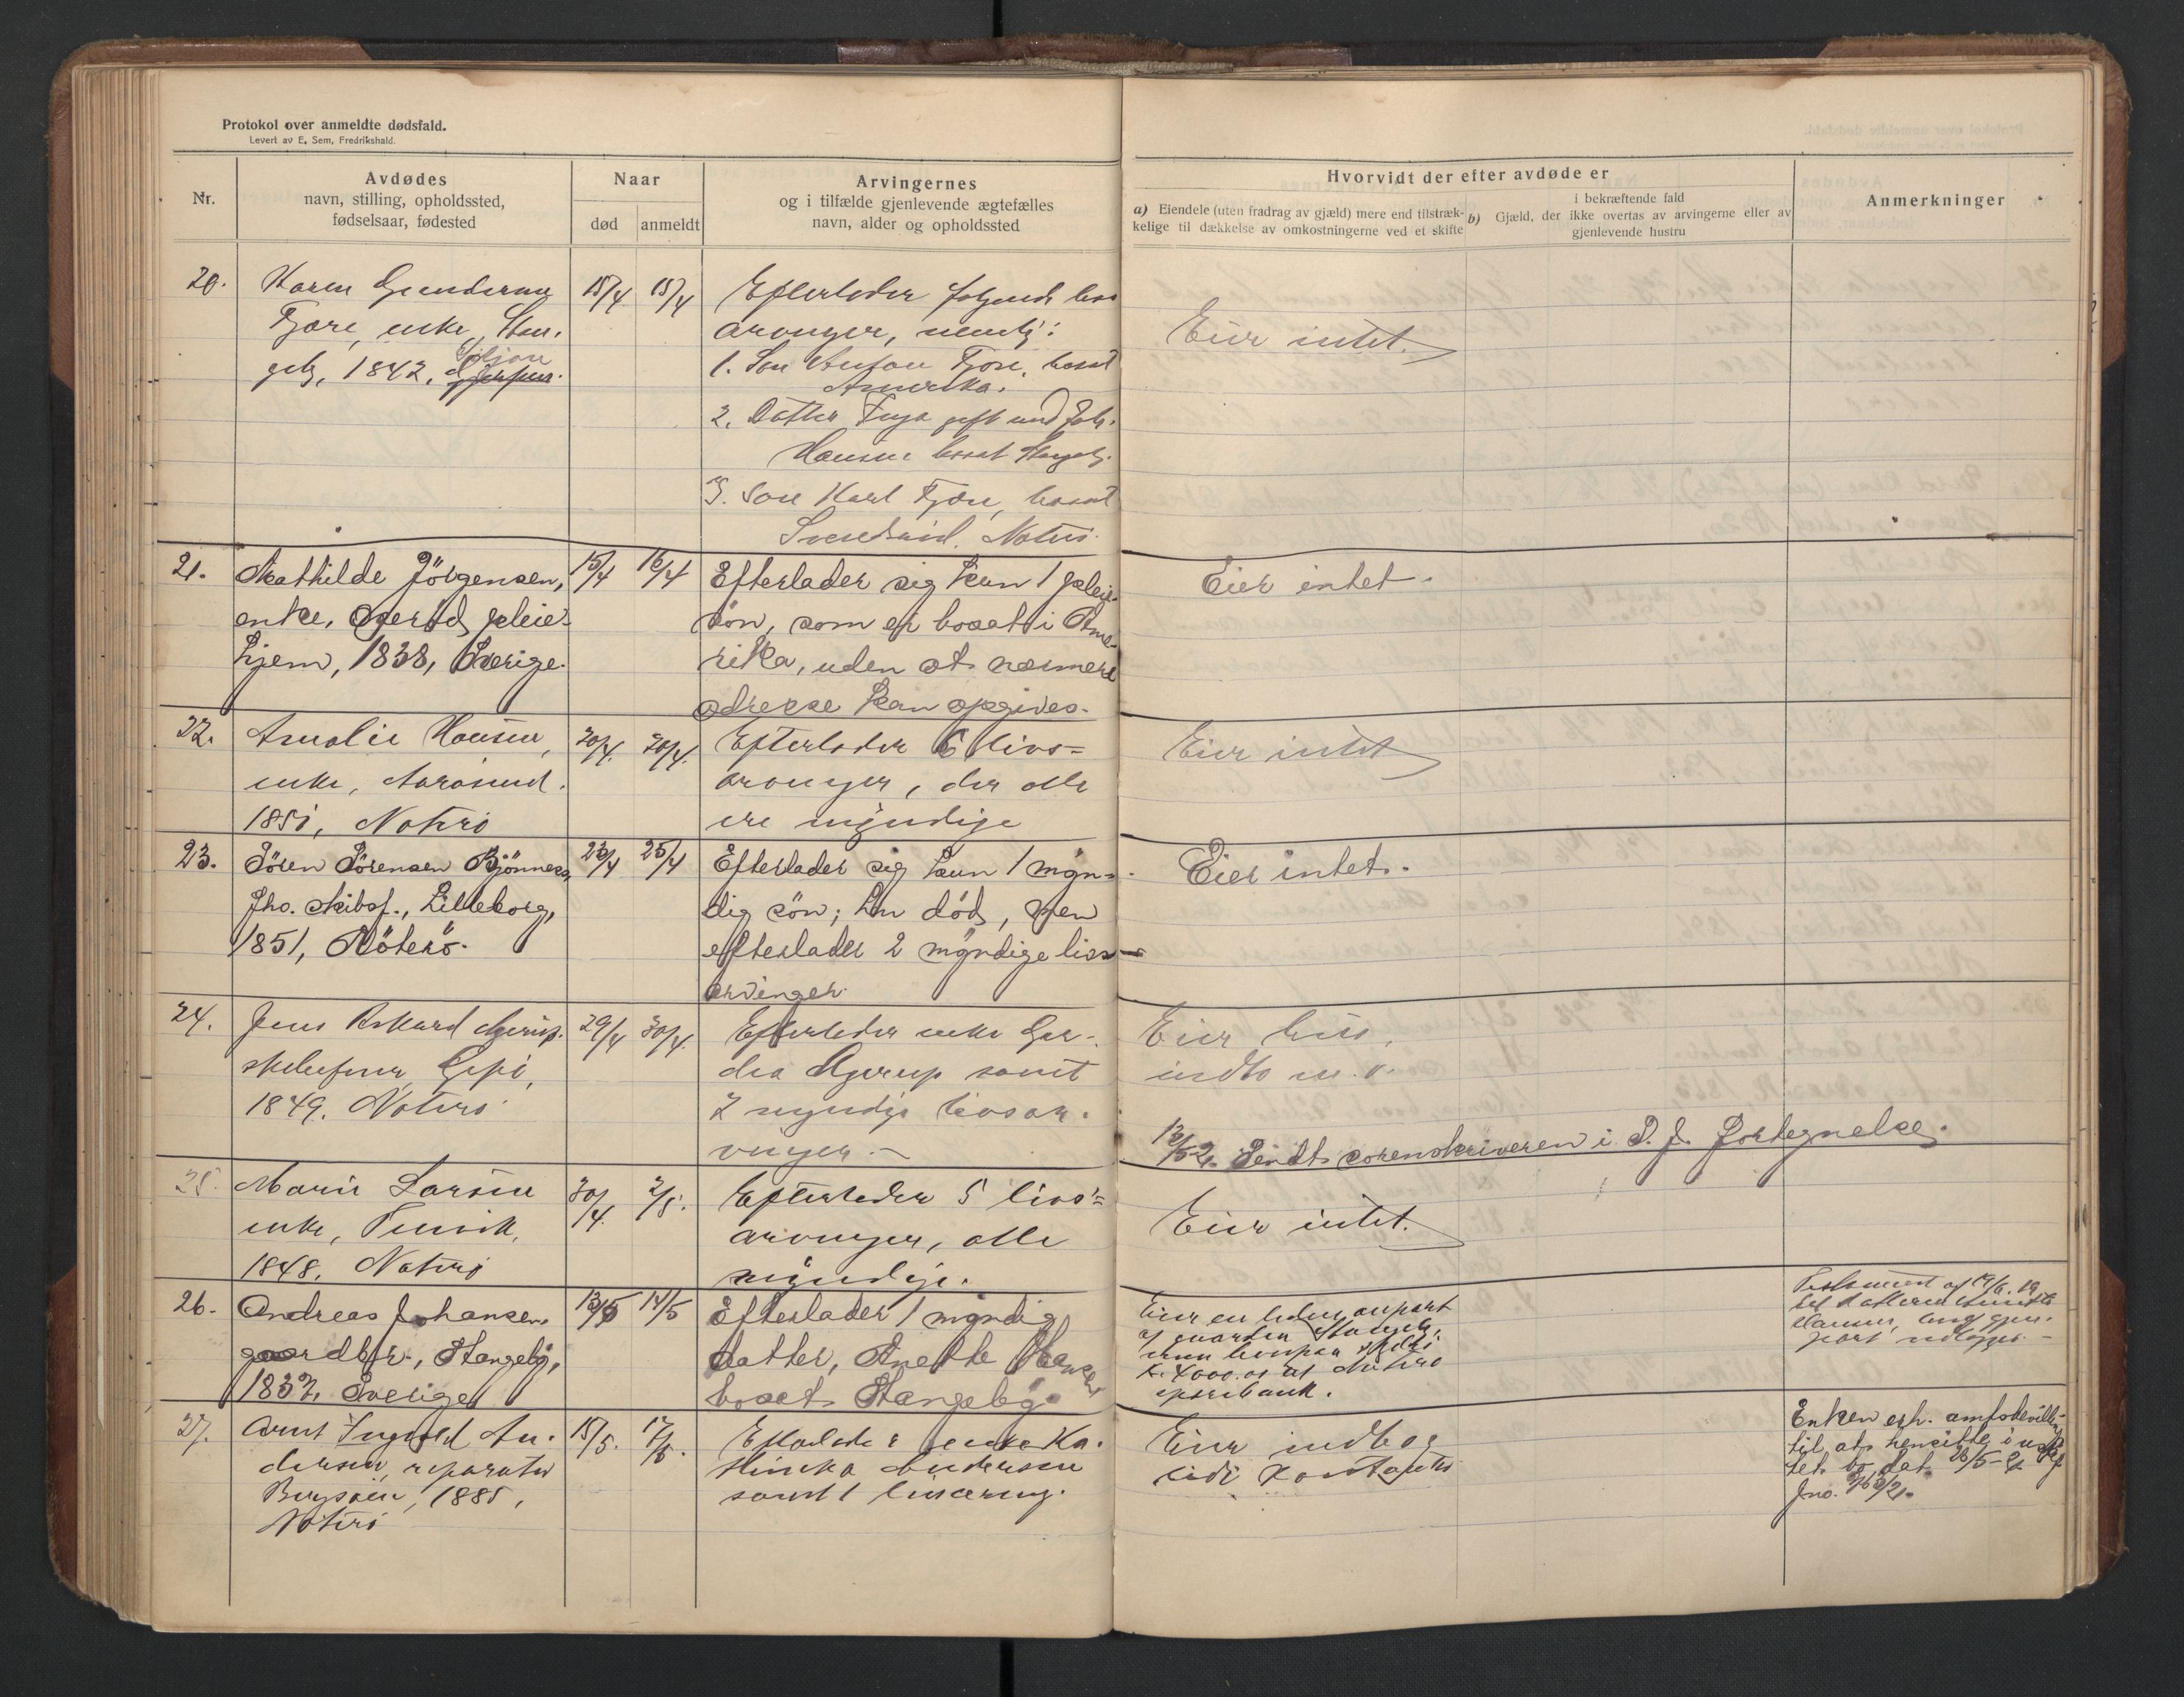 Protokol over anmeldte dødsfald.
Levert av E. Sem, Fredrikshald.
Nr.
Avdødes
navn, stilling, opholdssted,
fødselsaar, fødested
Naar
død
anmeldt
Arvingernes
og i tilfælde gjenlevende ægtefælles
navn, alder og opholdssted
Hvorvidt der efter avdøde er
a) Eiendele (uten fradrag av gjæld) mere end tilstræk-
kelige til dækkelse av omkostningerne ved et skifte
i bekræftende fald
b) Gjæld, der ikke overtas av arvingerne eller av
gjenlevende hustru
Anmerkninger
20.
Karen Gundersen
Fjære, enke, Stan-
geby, 1842,
15/4 15/4
Efterlader følgende livs
arvinger, nemlig:
1. Søn Anton Fjære, bosat
Amerika.
2. Datter Inga gift med Joh.
Hansen bosat Stangeby.
3. Søn Karl Fjære, bosat
Nøterø.
Eier intet.
21.
Mathilde Jörgensen,
enke, pleie-
hjem, 1838, Sverige.
15/4 16/4
Efterlader sig kun 1 pleie-
sön, som er bosat i Ame-
rika, uden at nærmere
adresse kan opgives.
Eier intet.
22.
Amalie Hansen,
enke, Aarøsund.
1851, Nøterø
20/4. 20/4.
Efterlader 6 livs-
arvinger, der alle
ere myndige
Eier intet
23.
Sören Sörensen Bjönness,
fho. skibsf., Lilleborg,
1851, Nöterö.
23/4 25/4
Efterlader sig kun 1 myn-
dig sön; en död, men
efterlader 2 myndige livs-
arvinger.
Eier intet.
24.
Jens Rikard Agerup.
skibsfører, Gipø,
1849. Nøterø
29/4 30/4.
Efterlader enke Ger-
dea Agerup samt
2 myndige livsar-
vinger.
Eier hus,
indbo m. v.
13/5-21. Sendt sorenskriveren i D. f. fortegnelse.
25.
Marie Larsen
enke, Tenvik,
1848. Nøterø
30/4. 2/5.
Efterlader 5 livs-
arvinger, alle
myndige.
Eier intet.
26.
Andreas Johansen
gaardbr., Stangeby,
1832, Sverige
13/5 14/5
Efterlader 1 myndig
datter, Anette Hansen
bosat Stangeby.
Eier en liden anpart
af gaarden Stangeby,
men hvorpaa skyldes
Kr. 4000.00 til Nøterø
sparebank.
Testament af
27.
Arnt Ingvald An-
dersen, reparatør
1885,
Nøterø
15/5. 17/5.
Efterlader enke Ka-
thinka Andersen
samt 1 livsarving.
Eier indbo og
lidt kontanter
Enken erh. amtsbevilling
til at hensidde i uskif-
tet bo dat. 26/5-21
Jno.